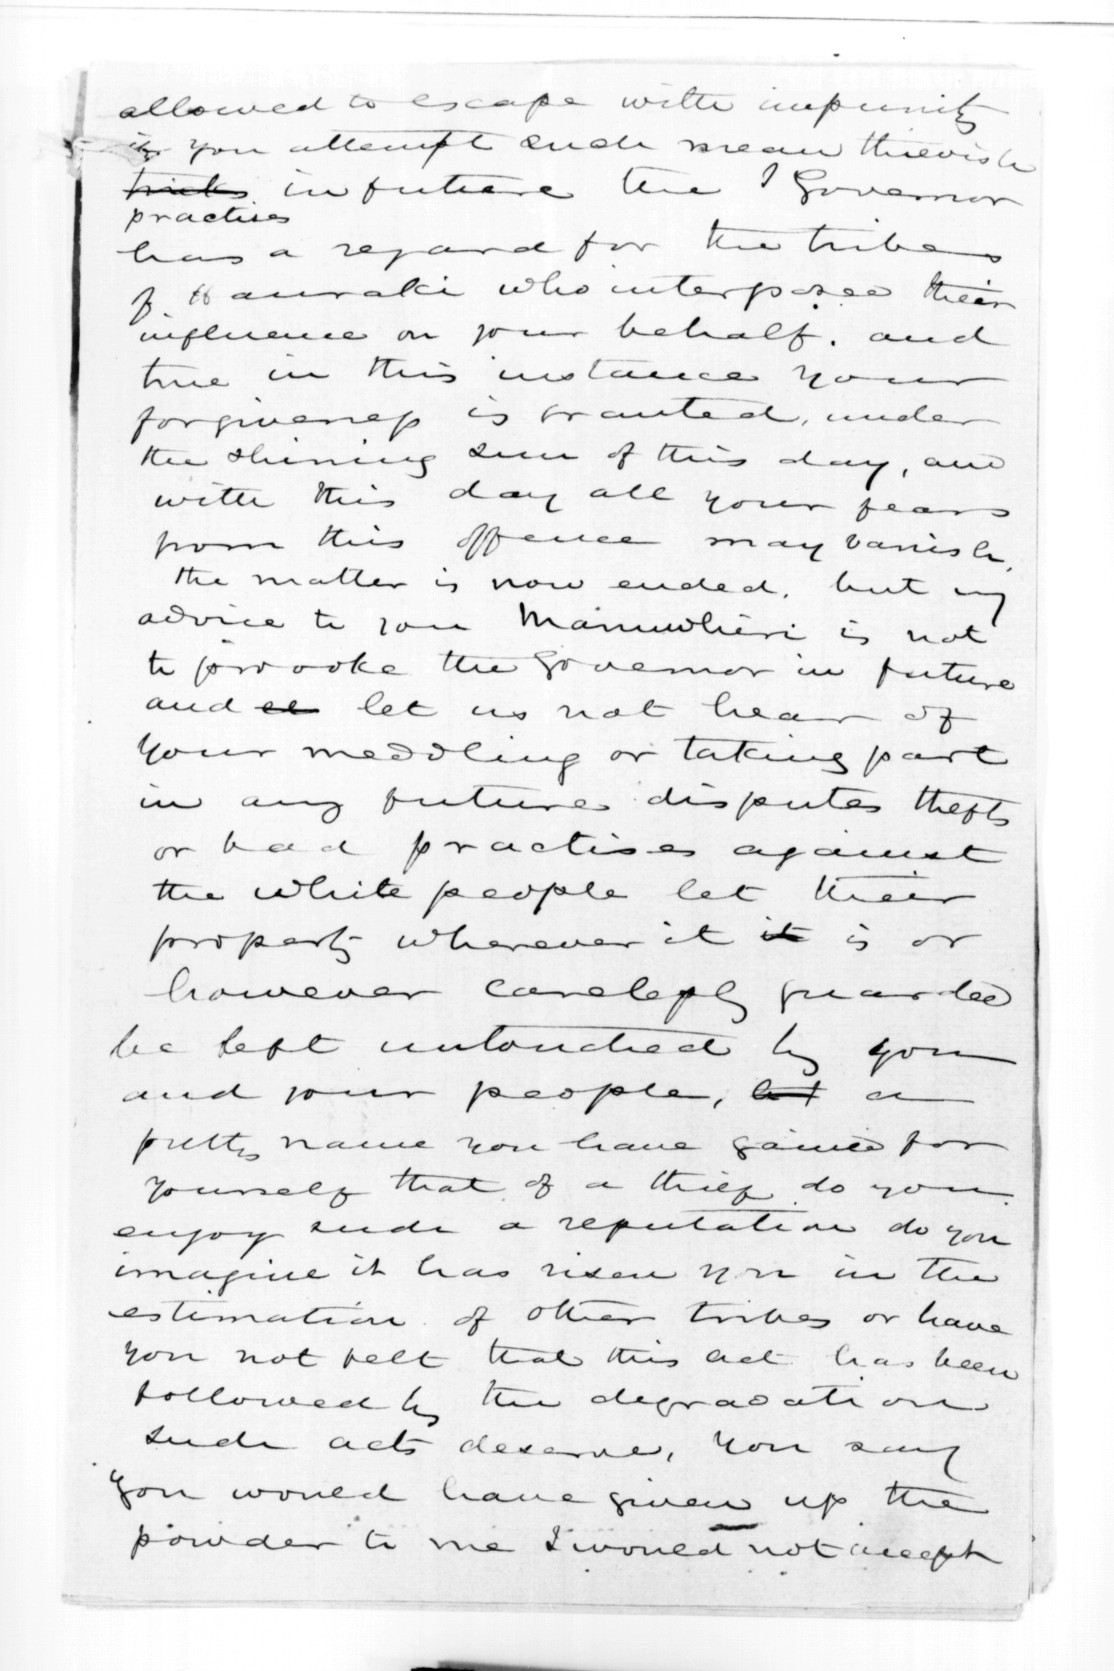 allowed to escape with impunity
if you attempt such mean thievish
tricks in future the Governor
practises
has a regard for the tribes
of Hauraki who interposed their
influence on your behalf. and
true in this instance your
forgiveness is granted, under
the shining sun of this day, and
with this day all your fears
from this offence may vanish,
the matter is now ended. but my
advice to you is not
to provoke the Governor in future
and let us not hear of
your meddling or taking part
in any future disputes thefts
or bad practises against
the white people let their
property wherever it it is or
however carelessly guarded
be left untouched by you
and your people, let a
pretty name you have gained for
yourself that of a thief do you
enjoy such a reputation do you
imagine it has risen you in the
estimation of other tribes or have
you not felt that this act has been
followed by the degradation
such acts deserve, You say
you would have given up the
powder to me I would not accept